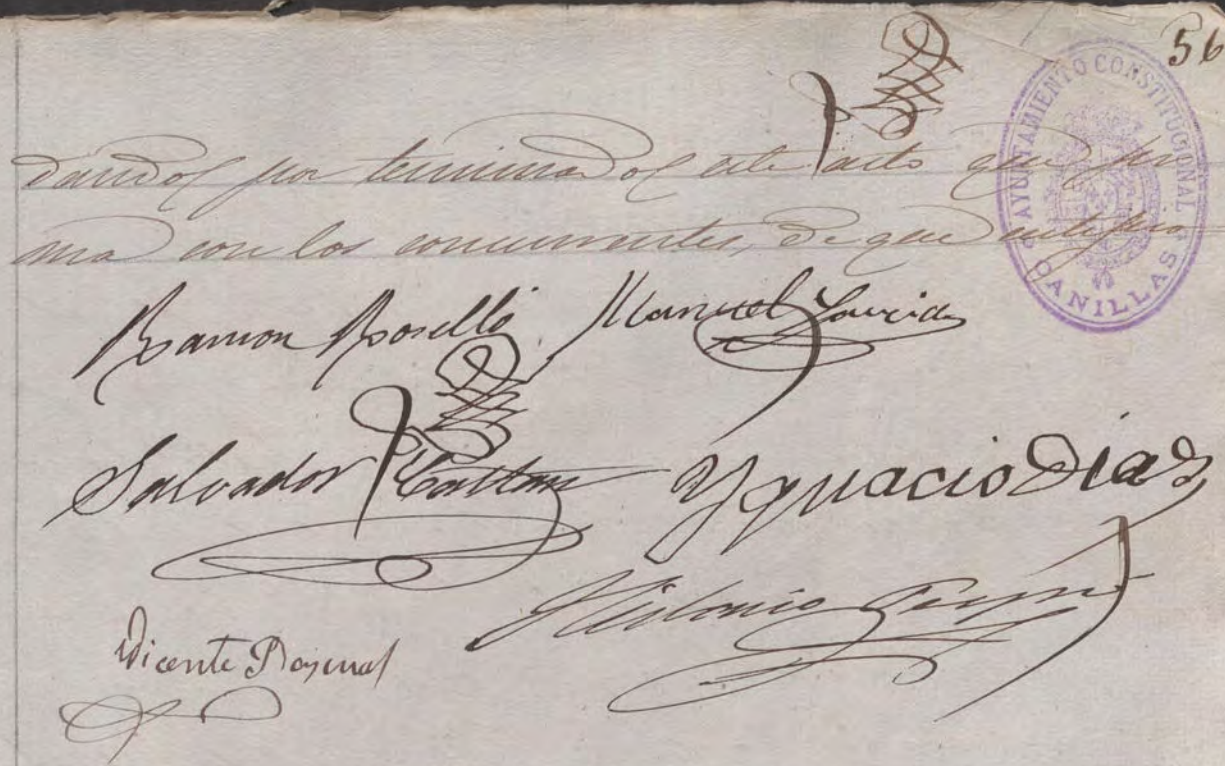 56
AYUNTAMIENTO CONSTITUCIONAL
CANILLAS
dandose por terminado este acto que fir
ma con los concurrentes, de que certifico
Ramon Roselló Manuel
Salvador Ygnacio Diaz
Antonio
Vicente Pascual